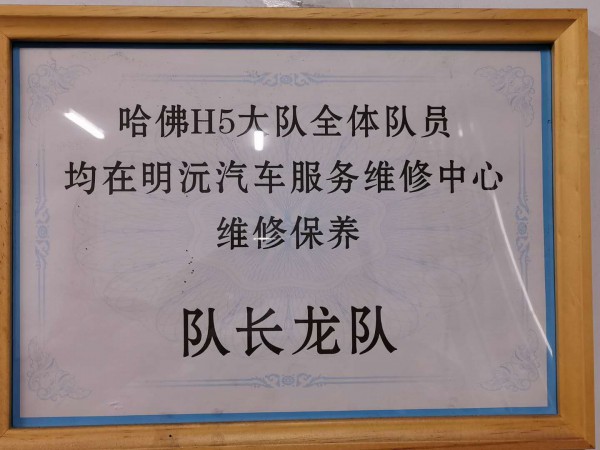 哈佛H5大队全体队员
均在明沅汽车服务维修中心
维修保养
队长龙队